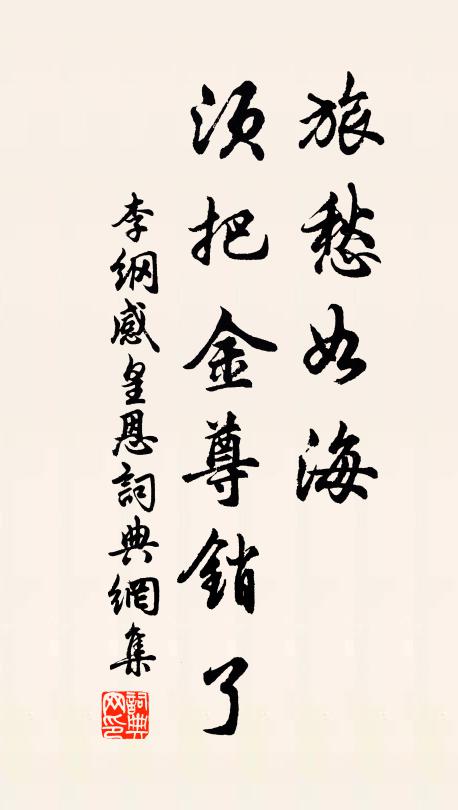 旅愁如海
須把金尊銷了
李綱感皇恩詞典網集
詞典
网印